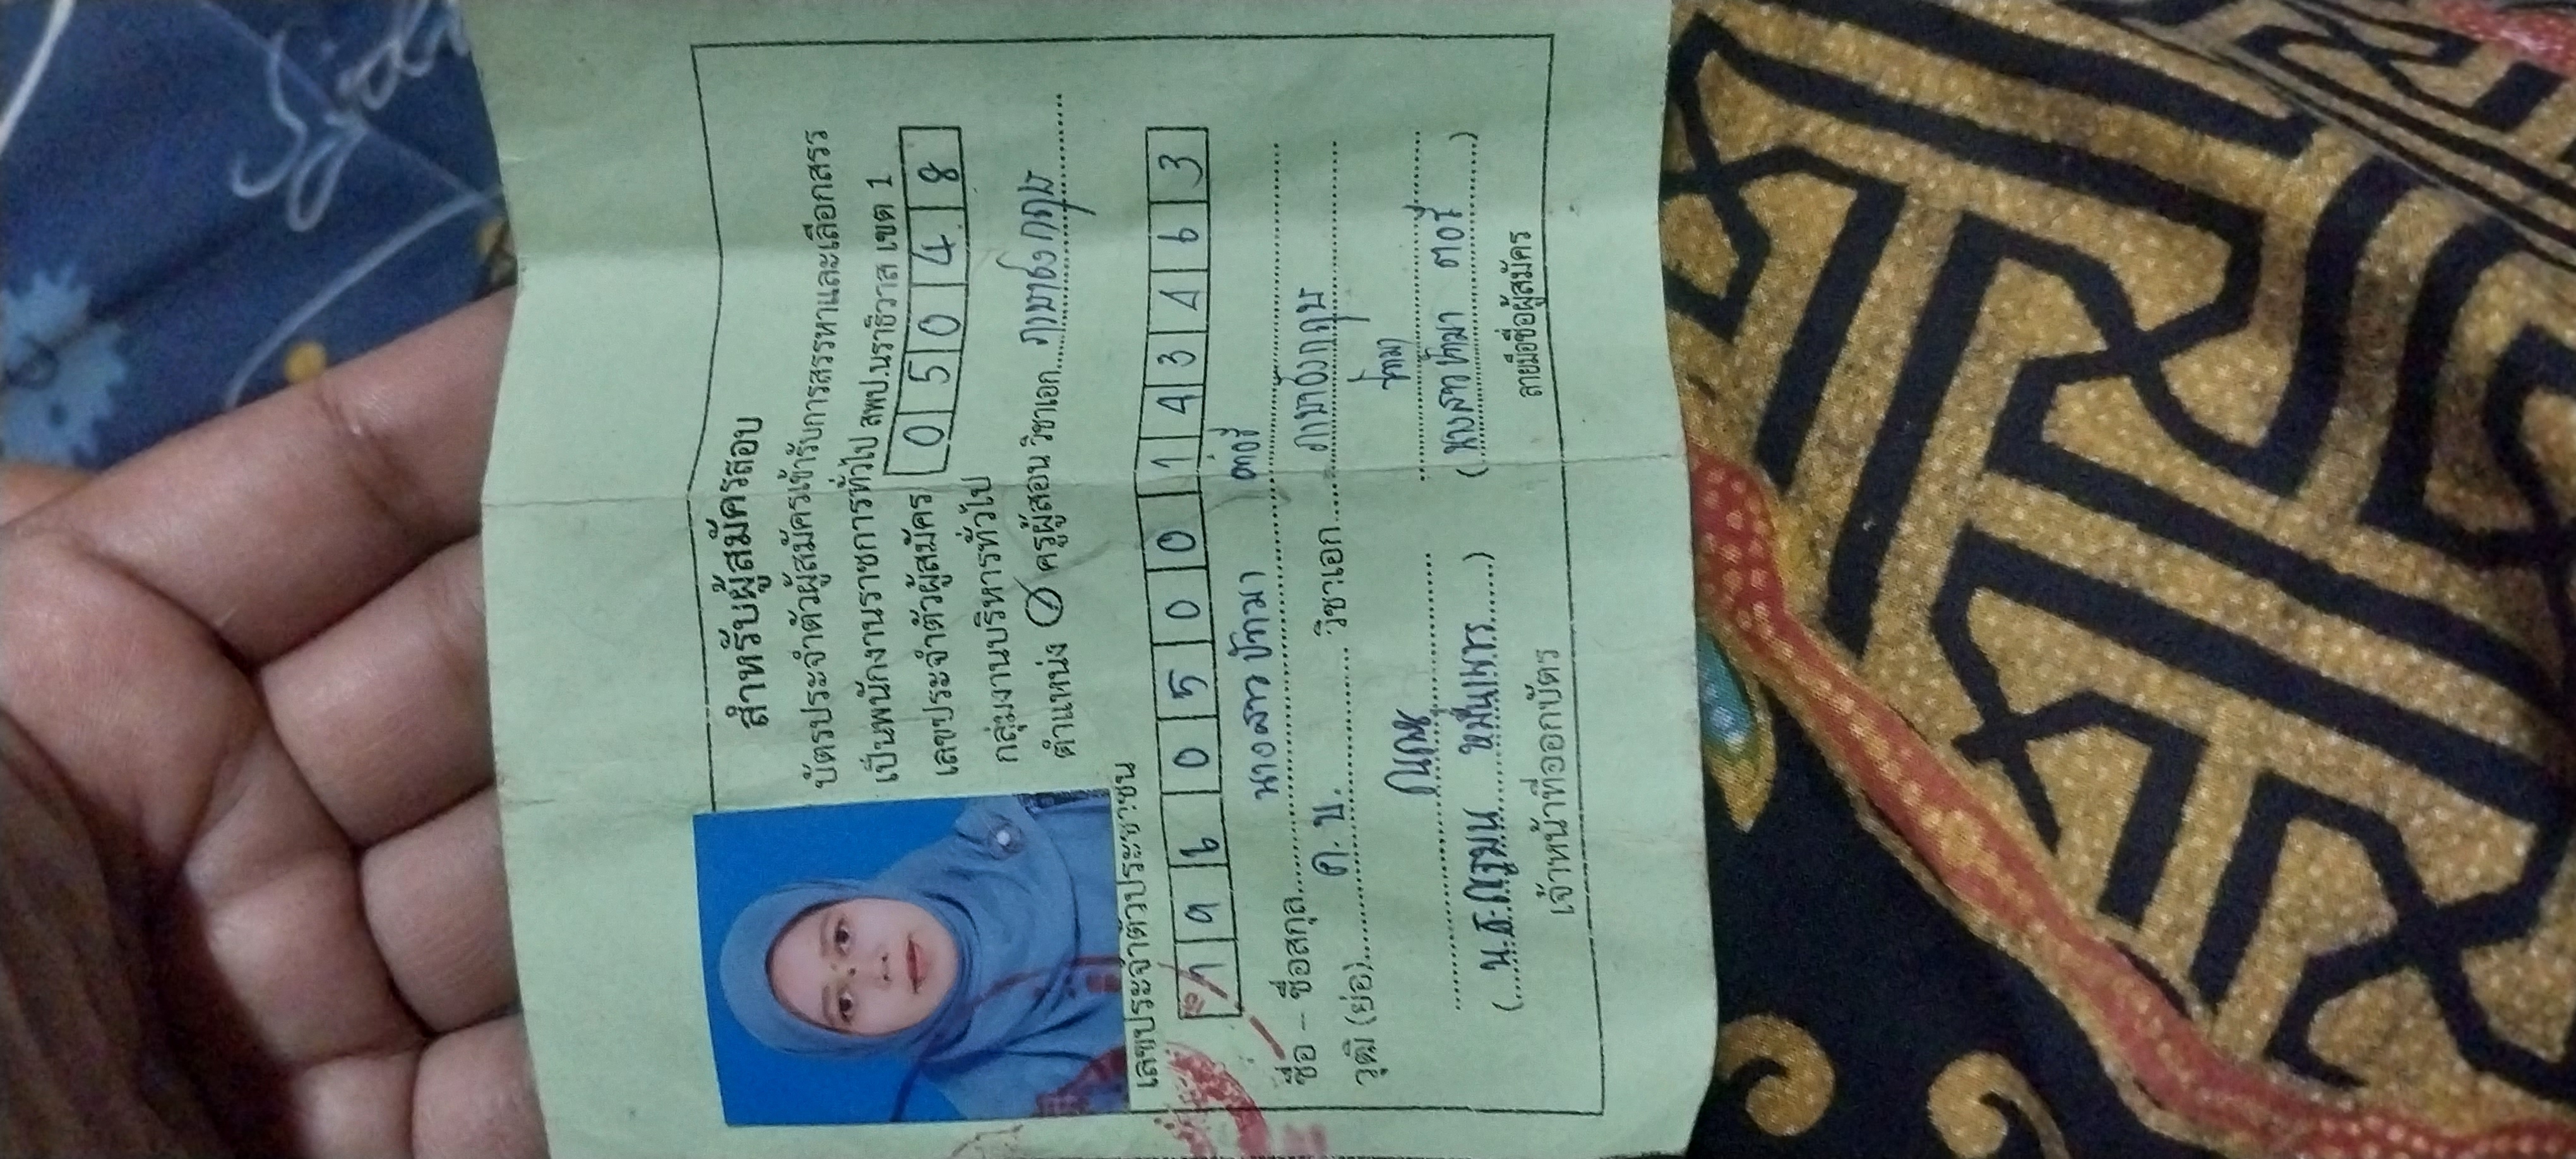 สำหรับผู้สมัครสอบ
บัตรประจำตัวผู้สมัครเข้ารับการสรรหาและเลือกสรร
เป็นพนักงานราชการทั่วไป สพป.นราธิวาส เขต 1
เลขประจำตัวผู้สมัคร 0 5 0 4 8
กลุ่มงานบริหารทั่วไป
ตำแหน่ง ครูผู้สอน วิชาเอก ภาษาอังกฤษ
เลขประจำตัวประชาชน
1 9 6 0 5 0 0 1 4 3 4 6 3
ชื่อ – ชื่อสกุล นางสาว
วุฒิ (ย่อ) ค.บ. วิชาเอก ภาษาอังกฤษ
(นางสาว
เจ้าหน้าที่ออกบัตร ลายมือชื่อผู้สมัคร